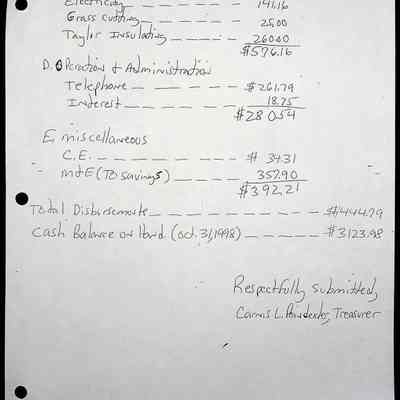 Electricity - - - - - - 141.16
Grass cutting - - - - - 25.00
Taylor Insulating - - - - - 260.00
$576.16
D. Operation & Administration
Telephone - - - - - - $261.79
Interest - - - - - - 18.75
$280.54
E. miscellaneous
C.E. - - - - - - - $ 34.31
m&E (To savings) - - - - 357.90
$392.21
Total Disbursements - - - - - - - - - $4144.79
Cash Balance on Hand (Oct. 31, 1998) - - - - - $3123.98
Respectfully submitted,
L. Poindexter, Treasurer